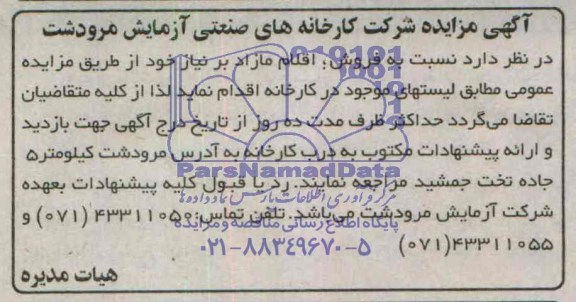 آگهی مزایده شرکت کارخانه های صنعتی آزمایش مرودشت
در نظر دارد نسبت به فروش: اقلام مازاد بر نیاز خود از طریق مزایده
عمومی مطابق لیستهای موجود در کارخانه اقدام نماید لذا از کلیه متقاضیان
تقاضا می‌گردد حداکثر ظرف مدت ده روز از تاریخ درج آگهی جهت بازدید
و ارائه پیشنهادات مکتوب به درب کارخانه به آدرس مرودشت کیلومتر۵
ParsNamadData
جاده تخت جمشید مراجعه نمایند. رد یا قبول کلیه پیشنهادات بعهده
شرکت آزمایش مرودشت می‌باشد. تلفن تماس: ۴۳۳۱۱۰۵۰ (۰۷۱) و
پایگاه اطلاع رسانی مناقصه و مزایده
۴۳۳۱۱۰۵۵(۰۷۱)
۰۲۱-۸۸۳۴۹۶۷۰-۵
هیات مدیره